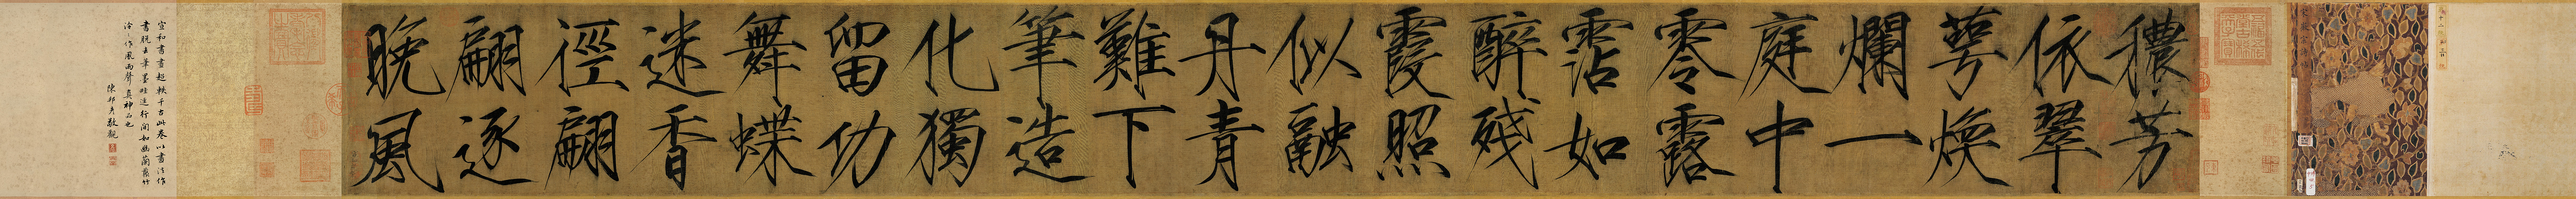 穠芳
依翠
萼煥
爛一
庭中
零露
霑如
醉殘
霞照
似融
丹青
難下
筆造
化獨
留功
舞蝶
迷香
徑翩
翩逐
晚風
宣和書畫超軼千古此卷以畫法作
書脫去筆墨畦逕行間如幽蘭叢竹
泠泠作風雨聲真神品也
陳邦彥敬觀